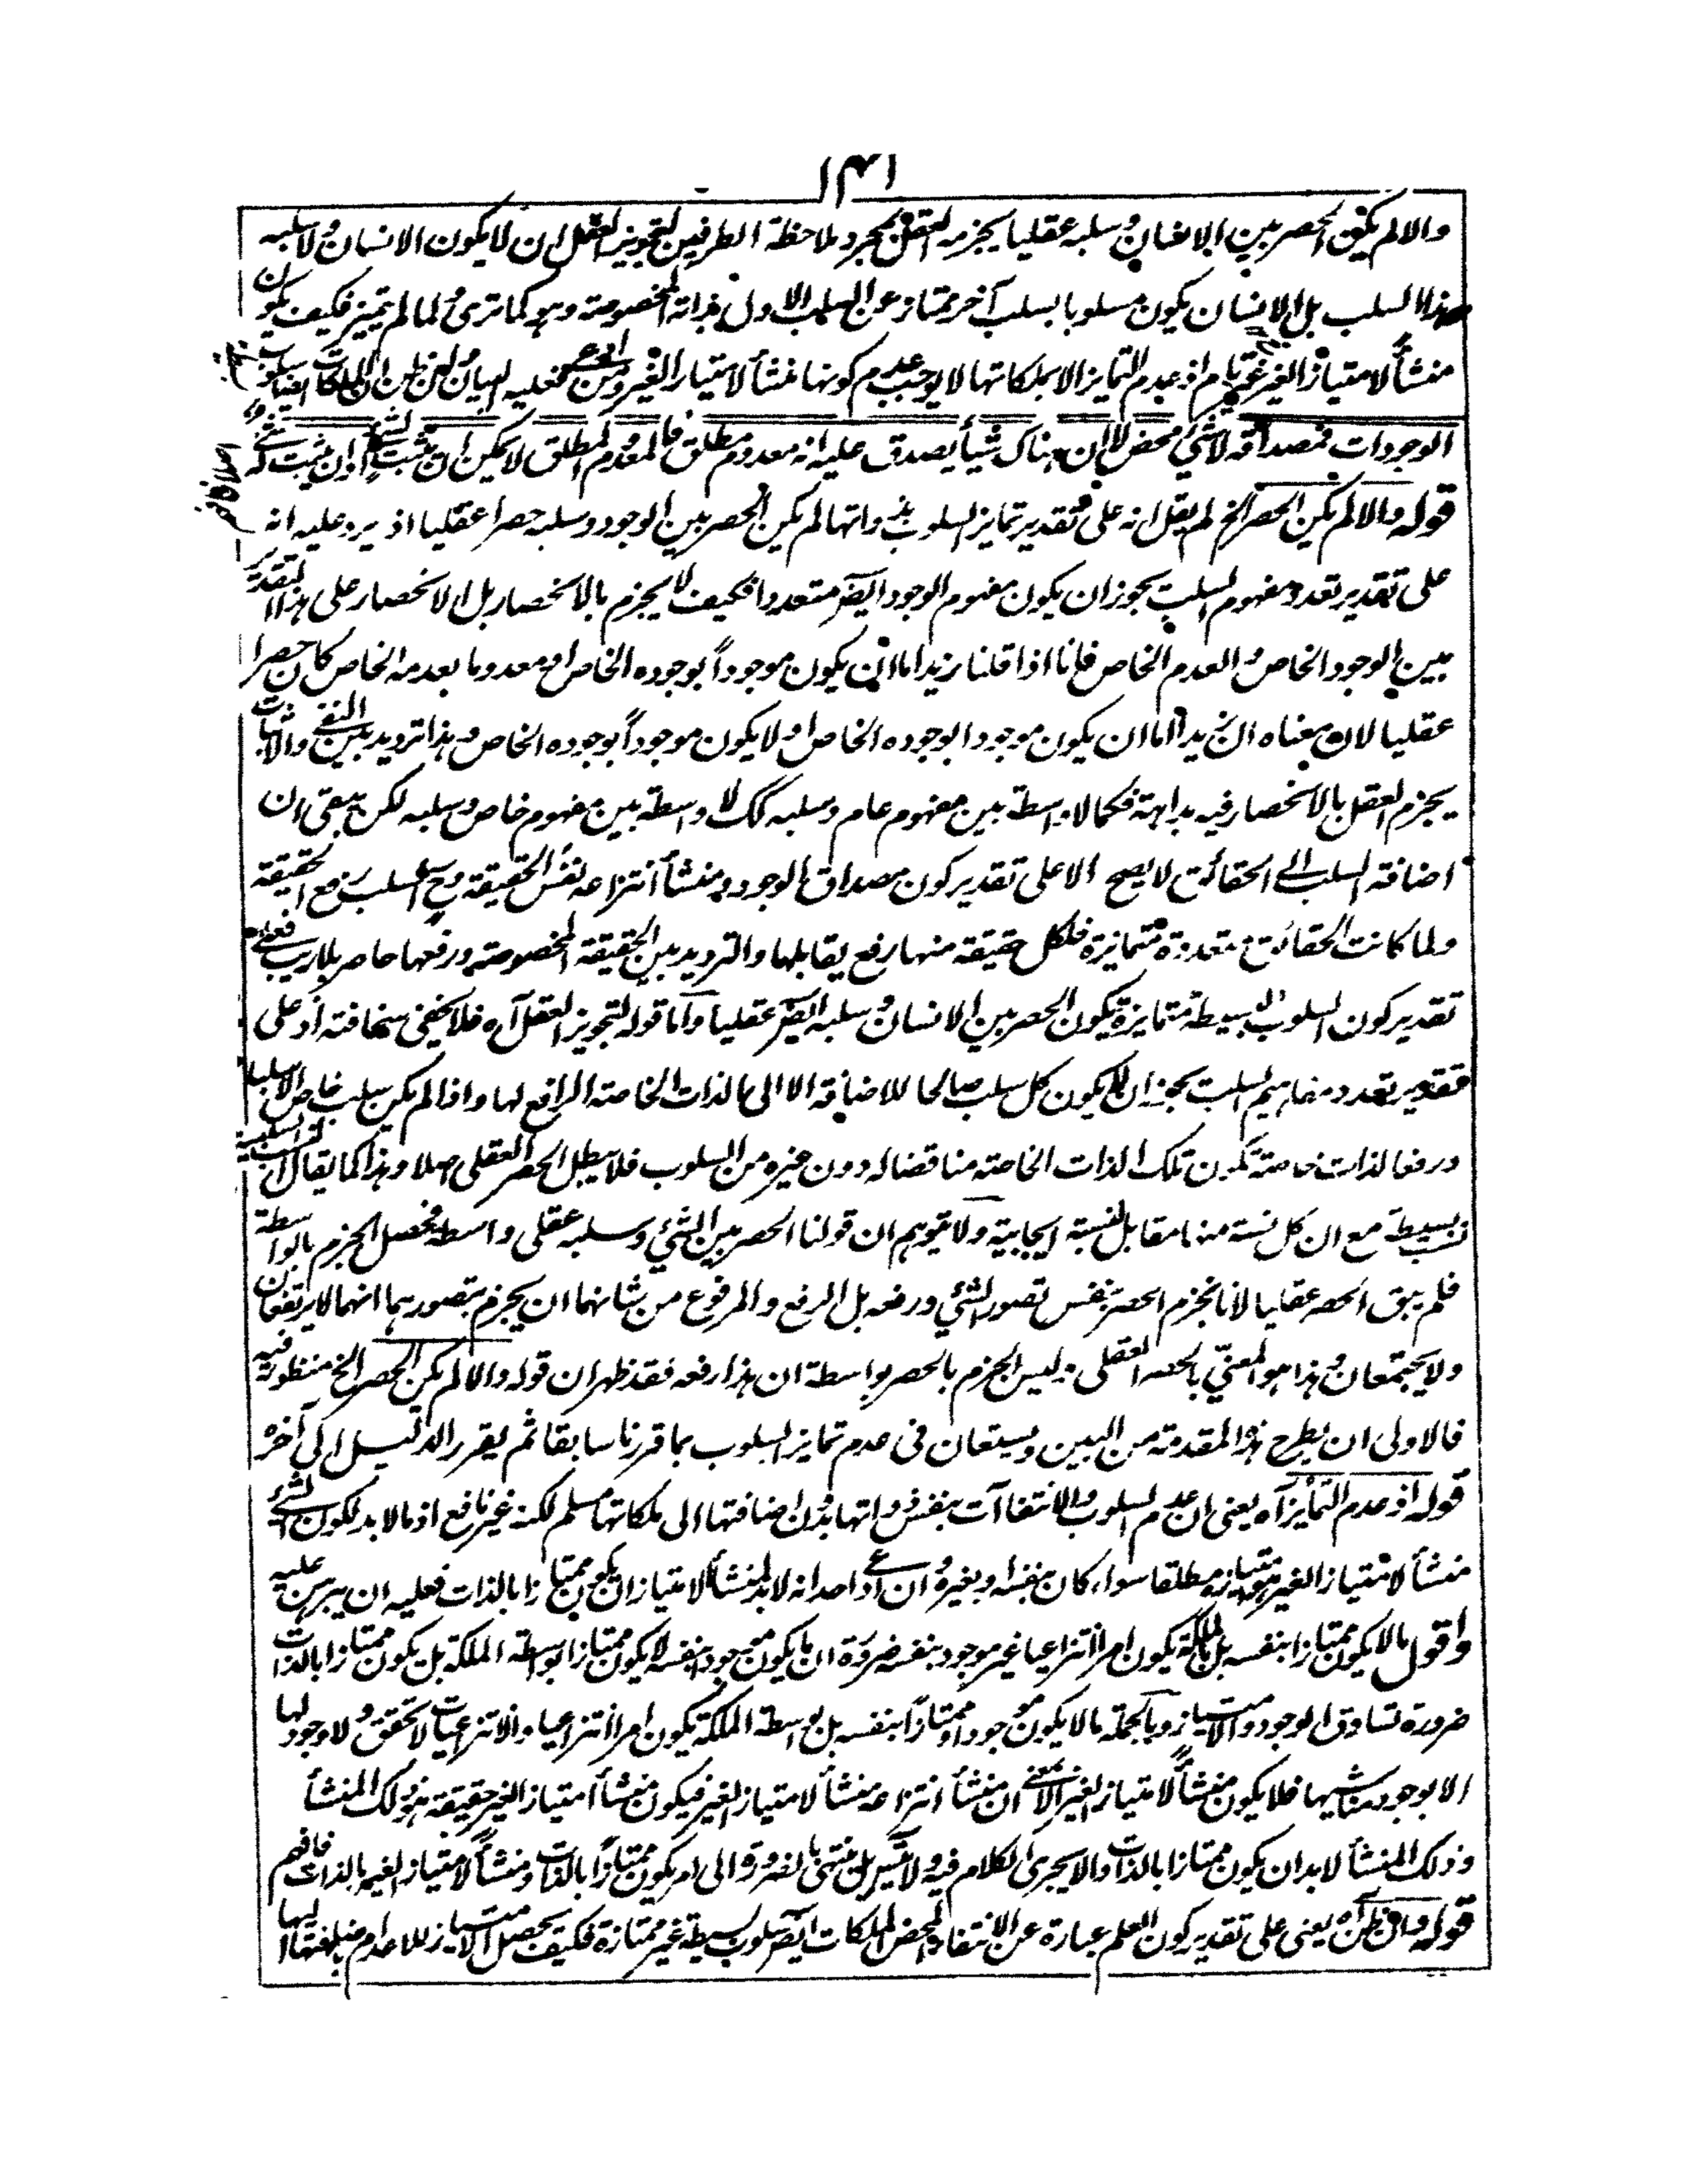 ١٤١
والا لم يكن الحصر بين الانسان وسلبه عقليا يجزم به العقل بمجرد ملاحظة الطرفين لتجويز العقل ان لا يكون الانسان ولا سلبه
هذا السلب بل الانسان يكون مسلوبا بسلب آخر ممتاز عن السلب الاول بذاته المخصوصة وهو كما ترى ولما لم يتميز فكيف يكون
منشأ لامتياز الغير اذ عدم التمايز الا بملكاتها لا يوجب عدم كونها منشأ لامتياز الغير ومن ادعى فعليه البيان ولئن ظن ان الملكات ايضا سلوب
الوجودات فمصداقه لا شئ محض لا ان هناك شيأ يصدق عليه انه معدوم مطلق فالمعدوم المطلق لا يمكن ان يثبت لشئ او ان يثبت له شئ
قوله والا لم يكن الحصر الخ لم يقل انه على تقدير تمايز السلوب بذواتها لم يكن الحصر بين الوجود وسلبه حصرا عقليا اذ يرد عليه انه
على تقدير تعدد مفهوم السلب يجوز ان يكون مفهوم الوجود ايضا متعددا فكيف لا يجزم بالانحصار بل الانحصار على هذا التقدير
بين الوجود الخاص والعدم الخاص فانا اذا قلنا زيد اما ان يكون موجوداً بوجوده الخاص او معدوما بعدمه الخاص كان حصرا
عقليا لان معناه ان زيدا اما ان يكون موجودا بوجوده الخاص او لا يكون موجوداً بوجوده الخاص وهذا ترديد بين النفى والاثبات
يجزم العقل بالانحصار فيه بداهة فكما لا واسطة بين مفهوم عام وسلبه كك لا واسطة بين مفهوم خاص وسلبه لكن يبقى ان
اضافة السلب الى الحقائق لا يصح الا على تقدير كون مصداق الوجود ومنشأ انتزاعه نفس الحقيقة وح السلب رفع الحقيقة
ولما كانت الحقائق متعددة متمايزة فلكل حقيقة منها رفع يقابلها والترديد بين الحقيقة المخصوصة ورفعها حاصر بلا ريب فعلى
تقدير كون السلوب البسيطة متمايزة يكون الحصر بين الانسان وسلبه ايضا عقليا واما قوله لتجويز العقل آه فلا يخفى سخافته اذ على
تقدير تعدد مفاهيم السلب يجوز ان لا يكون كل سلب صالحا للاضافة الا الى الذات الخاصة الرافع لها واذا لم يكن سلب خاص الا سلبا
ورفعا لذات خاصة تكون تلك الذات الخاصة مناقضا له دون غيره من السلوب فلا يبطل الحصر العقلى اصلا وهذا كما يقال ان النسب السلبية
بسيطة مع ان كل نسبة منها مقابل لنسبة ايجابية ولا يتوهم ان قولنا الحصر بين الشئ وسلبه عقلى واسطة فحصل الجزم بالواسطة
فلم يبق الحصر عقليا لانا نجزم الحصر بنفس تصور الشئ ورفعه بل الرفع والمرفوع من شانهما ان يجزم بتصورهما انهما لا يرتفعان
ولا يجتمعان وهذا هو المعنى بالحصر العقلى وليس الجزم بالحصر بواسطة ان هذا رفعه فقد ظهر ان قوله والا لم يكن الحصر الخ منظور فيه
فالاولى ان يطرح هذا المقدمة من البين ويستعان فى عدم تمايز السلوب بما قررنا سابقا ثم يقرر الدليل الى آخره
قوله اذ عدم التمايز آه يعنى ان عدم السلوب والانتفاآت بنفس ذواتها بدون اضافتها الى ملكاتها مسلم لكنه غير نافع اذ ما لا بد لكون الشئ
منشأ لامتياز الغير تميزه مطلقا سواء كان بنفسه او بغيره وان ادعى احد انه لا بد لمنشأ الامتياز ان يكون ممتازا بالذات فعليه ان يبرهن عليه
واقول ما لا يكون ممتازا بنفسه بل بالملكة يكون امرا انتزاعيا غير موجود بنفسه ضرورة ان ما يكون موجودا بنفسه لا يكون ممتازا بواسطة الملكة بل يكون ممتازا بالذات
ضرورة تساوق الوجود والامتياز وبالجملة ما لا يكون موجودا وممتازاً بنفسه بل بواسطة الملكة يكون امرا انتزاعيا والانتزاعيات لا تحقق ولا وجود لها
الا بوجود مناشيها فلا يكون منشأً لامتياز الغير الا بمعنى ان منشأ انتزاعه منشأ لامتياز الغير فيكون منشأ امتياز الغير حقيقة هو ذلك المنشأ
وذلك المنشأ لا بد ان يكون ممتازا بالذات والا يجرى الكلام فيه ولا يتس بل ينتهى بالضرورة الى امر يكون ممتازاً بالذات ومنشأ لامتياز الغير بالذات فافهم
قوله ولئن ظن آه يعنى على تقدير كون العدم عبارة عن الانتفاء المحض الملكات ايضا سلوب بسيطة غير ممتازة فكيف يحصل الامتياز للاعدام باضافتها اليها